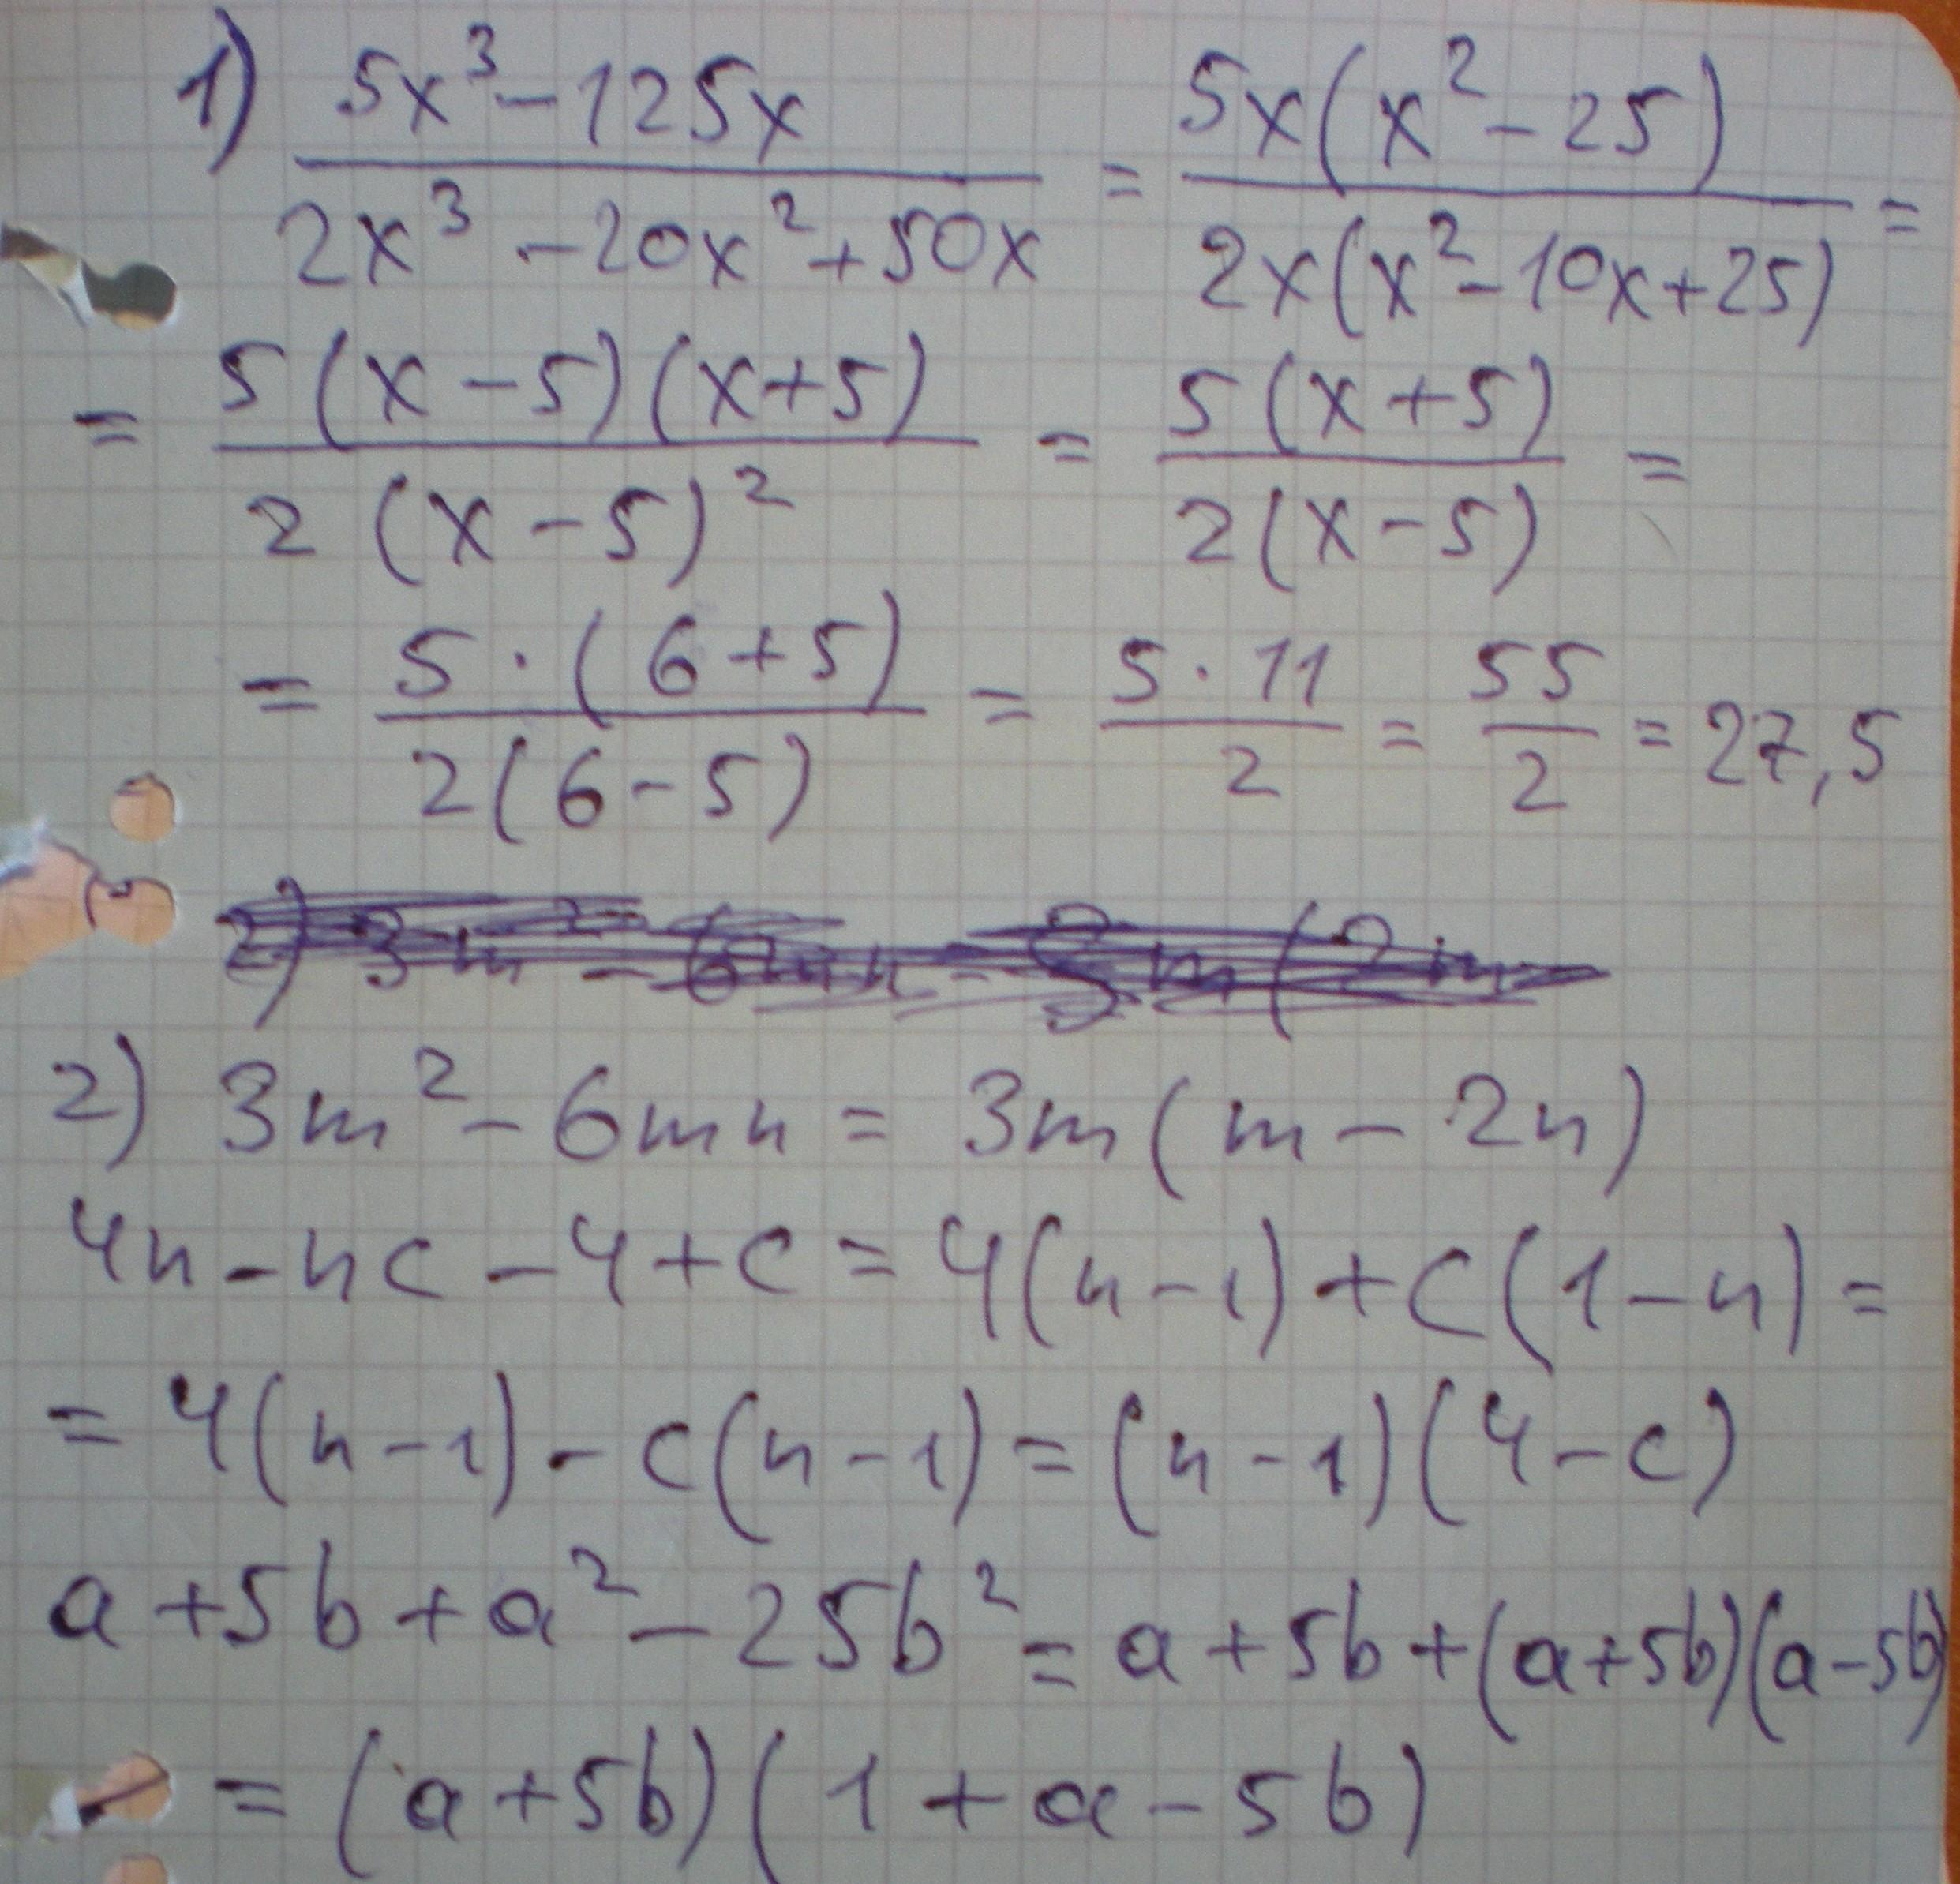 1) (5x³ - 125x)/(2x³ - 20x² + 50x) = 5x(x² - 25)/2x(x² - 10x + 25) =
= 5(x - 5)(x + 5)/2(x - 5)² = 5(x + 5)/2(x - 5) =
= 5 · (6 + 5)/2(6 - 5) = 5 · 11/2 = 55/2 = 27,5
2) 3m² - 6mn = 3m(m - 2n)
4n - nc - 4 + c = 4(n - 1) + c(1 - n) =
= 4(n - 1) - c(n - 1) = (n - 1)(4 - c)
a + 5b + a² - 25b² = a + 5b + (a + 5b)(a - 5b)
= (a + 5b)(1 + a - 5b)